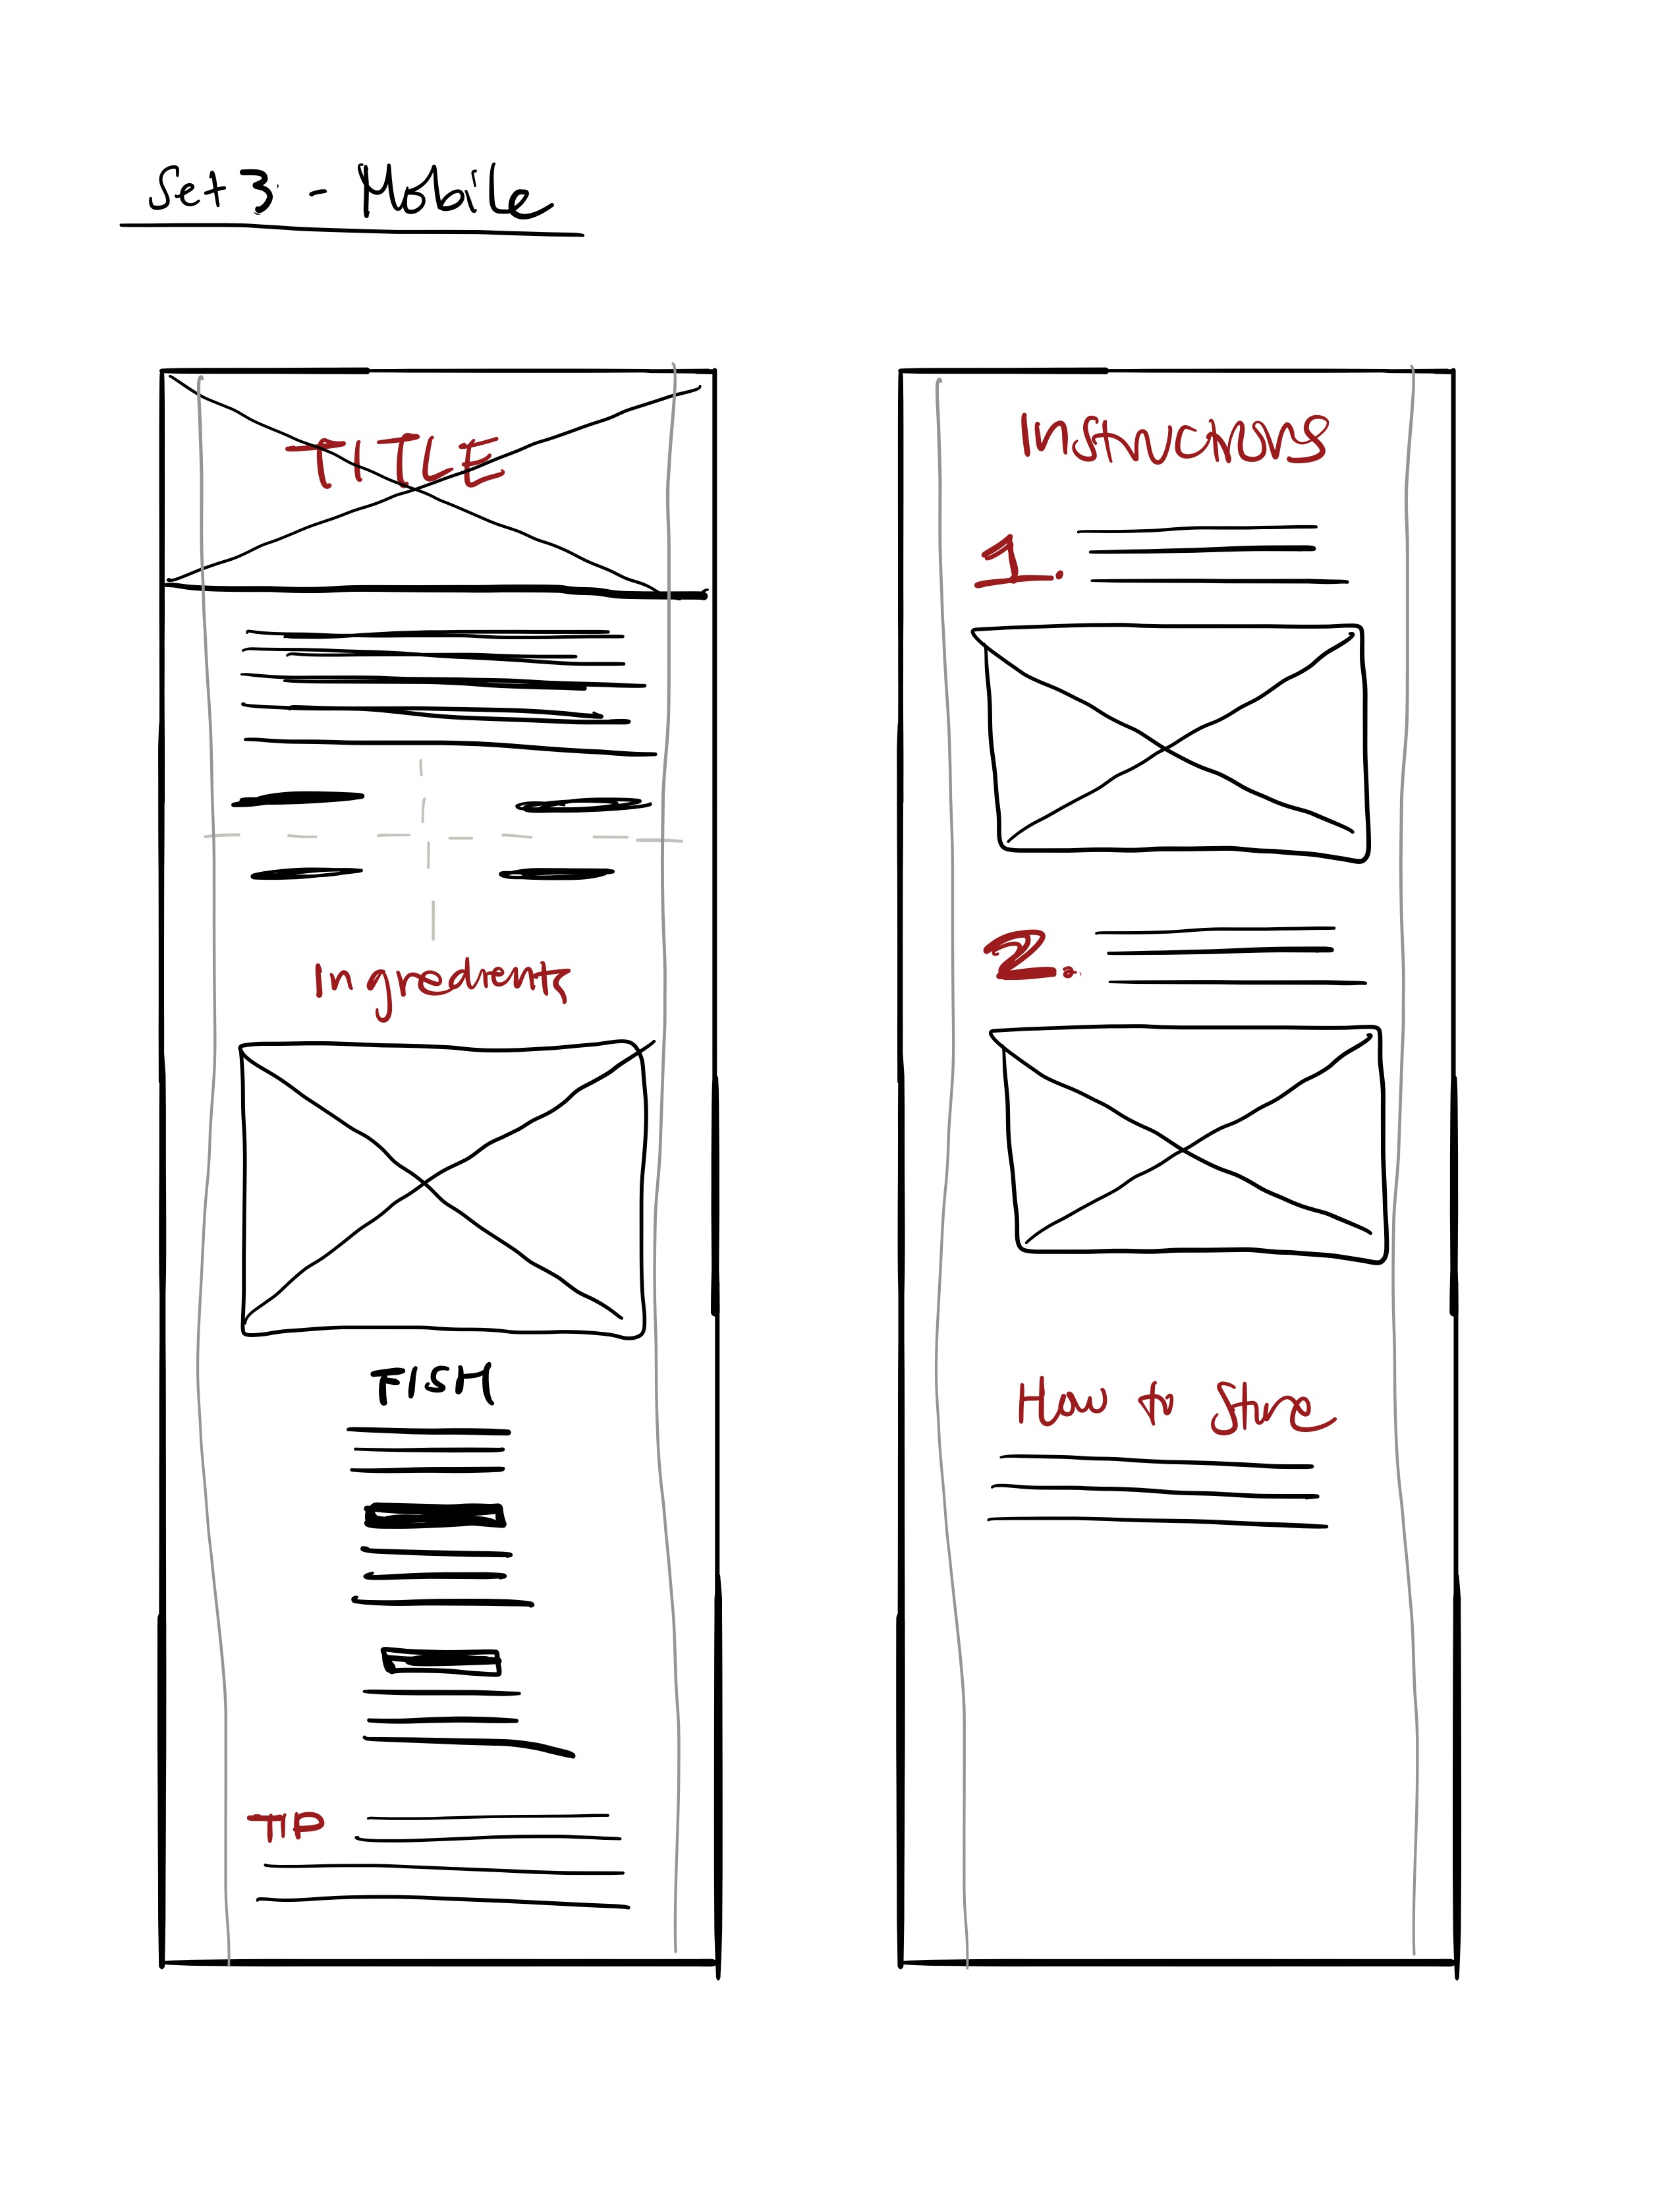 Set 3 - Mobile
TITLE
Ingredients
FISH
TIP
Instructions
1.
2.
How to Store